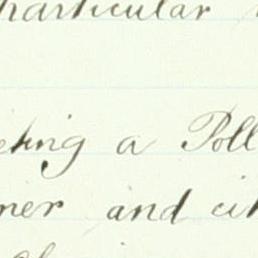 particular
eting a Poll
ner and cit